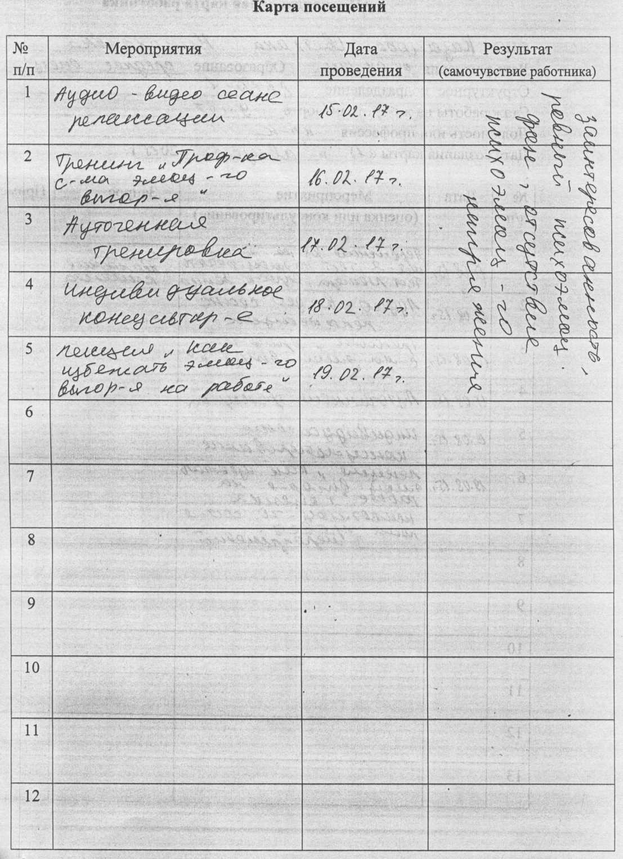 Карта посещений
№ п/п
Мероприятия
Дата проведения
Результат
(самочувствие работника)
1
Аудио - видео сеанс
релаксации
15.02.17 г.
2
Тренинг „Проф-ка
с-ма эмоц-го
выгор-я"
16.02.17 г.
3
Аутогенная
тренировка
17.02.17 г.
4
Индивидуальное
консультир-е
18.02.17 г.
5
лекция „Как
избежать эмоц-го
выгор-я на работе"
19.02.17 г.
заинтересованность,
ровный психоэмоц.
фон, отсутствие
психоэмоц-го
напряжения
6
7
8
9
10
11
12